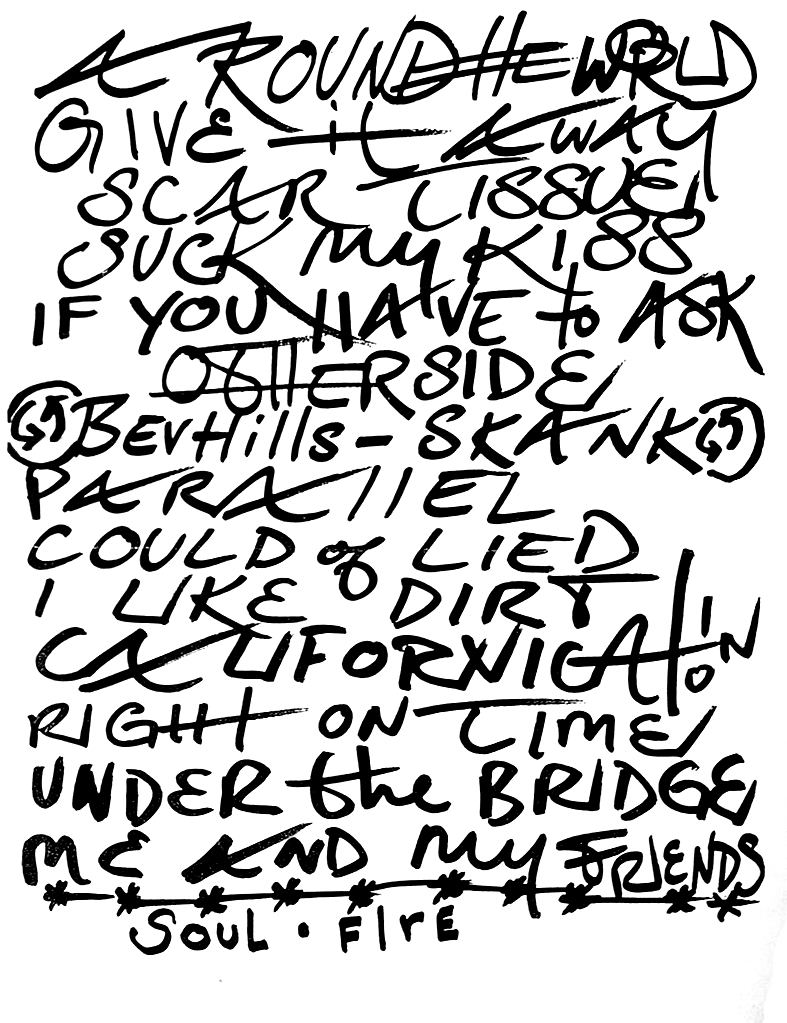 AROUND THE WORLD
GIVE it AWAY
SCAR TISSUE
SUCK My KISS
IF YOU HAVE to ASK
OTHERSIDE
BEVHills - SKANK
PARAllEL
COULD of LIED
I LIKE DIRT
CALIFORNICATiON
RIGHT ON TIME
UNDER the BRIDGE
ME AND My FRIENDS
SOUL • FIrE